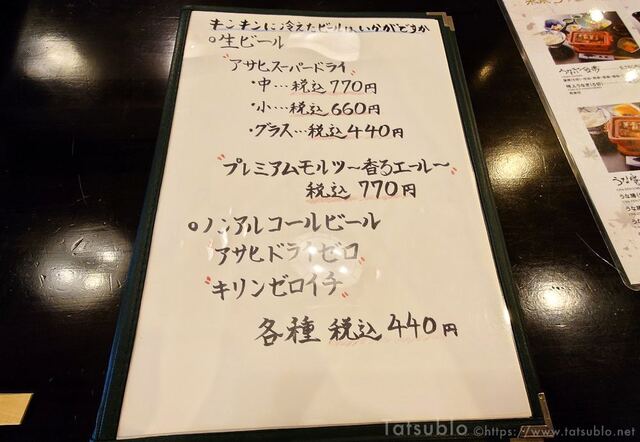 キンキンに冷えたビールはいかがですか
○生ビール
"アサヒスーパードライ"
・中…税込770円
・小…税込660円
・グラス…税込440円
"プレミアムモルツ〜香るエール〜"
税込770円
○ノンアルコールビール
"アサヒドライゼロ"
"キリンゼロイチ"
各種 税込440円
Tatsublo ©https://www.tatsublo.net